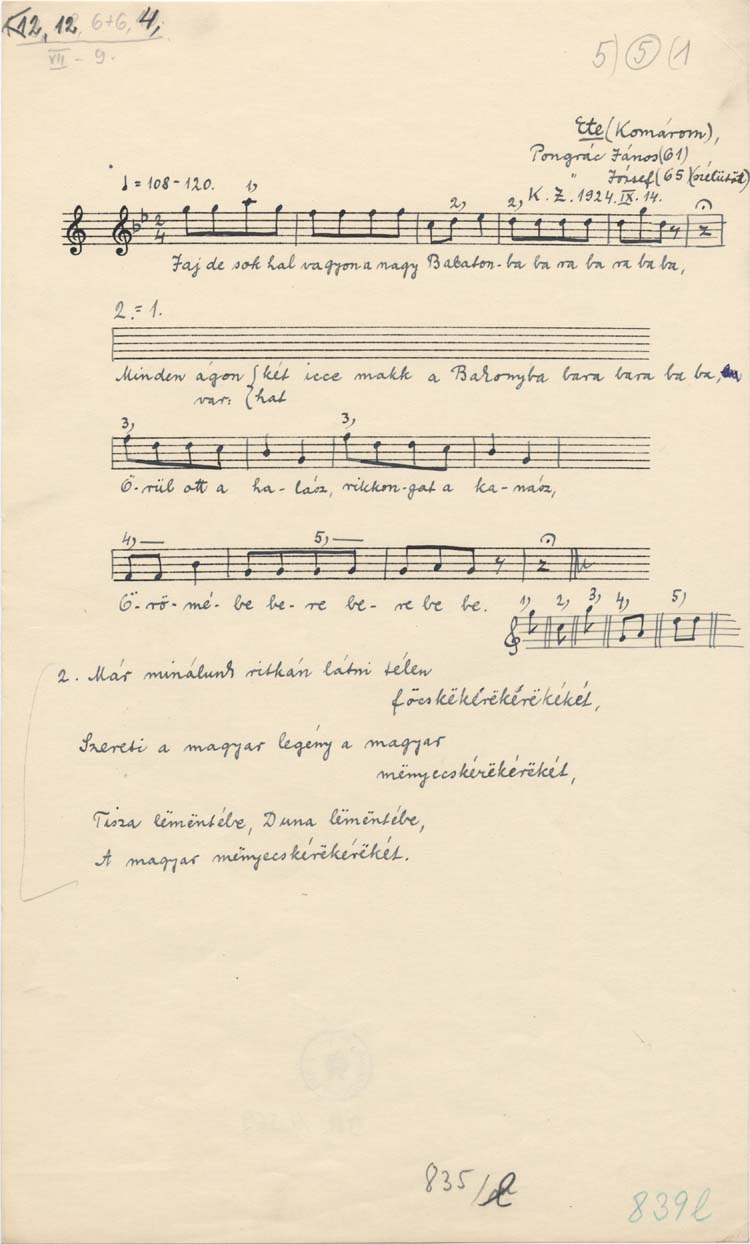 12, 12, 6+6, 4,
VII - 9.
5) 5 (1
Ete (Komárom),
Pongrác János (61)
" József (65)
♩ = 108-120.
K. Z. 1924. IX. 14.
1,
2,
2,
2
4
Jaj de sok hal vagyon a nagy Balaton-ba ba ra ba ra ba ba,
2. = 1.
Minden ágon { két icce makk a Bakonyba bara bara ba ba,
var: { hat
3,
3,
Ö-rül ott a ha-lász, rikkon-gat a ka-nász,
4,
5,
Ö-rö-mé-be be-re be-re be be.
1, 2, 3, 4, 5,
2. Már minálunk ritkán látni télen
föcskékérëkérëkékét,
Szereti a magyar legény a magyar
mënyecskérëkérëkét,
Tisza lëmëntébe, Duna lëmëntébe,
A magyar mënyecskérëkérëkét.
835/l
839l